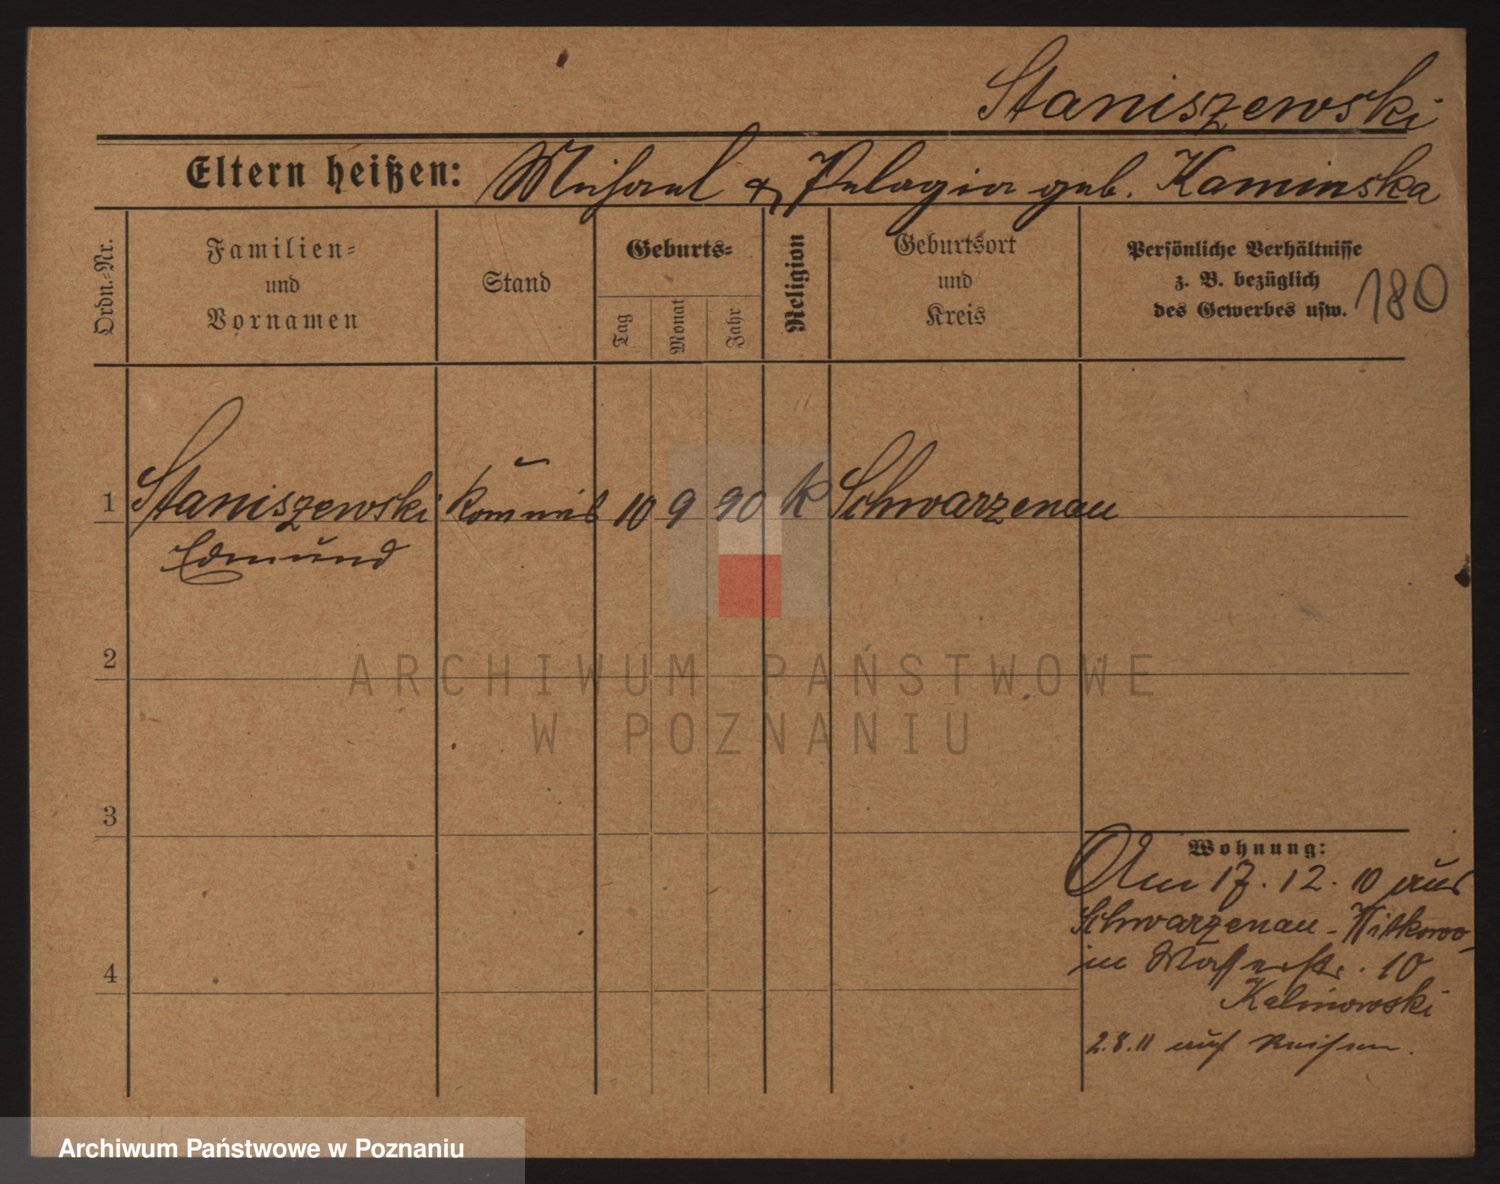 Staniszewski
Eltern heißen: Michael & Pelagia geb. Kaminska
Ordn.-Nr.
Familien-
und
Vornamen
Stand
Geburts-
Tag
Monat
Jahr
Religion
Geburtsort
und
Kreis
Persönliche Verhältnisse
z. B. bezüglich
des Gewerbes usw.
180
1 Staniszewski Kommis 10 9 90 K Schwarzenau
Edmund
2
3
4
Wohnung:
Am 17. 12. 10 aus
Schwarzenau - Witkowo
in Wasserstr. 10
Kalinowski
2.8.11 auf Reisen.
ARCHIWUM PAŃSTWOWE
W POZNANIU
Archiwum Państwowe w Poznaniu